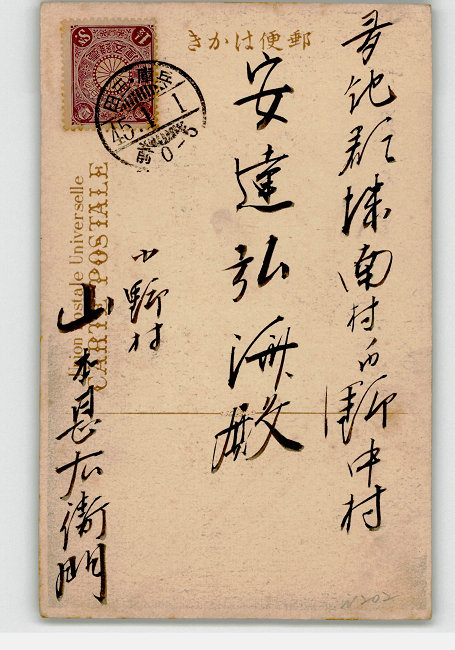 郵便はかき
多紀郡城南村
野中村
安達弘海殿
小野村
山本甚右衛門
Union Postale Universelle
CARTE POSTALE
45.1.1
0-5
N202